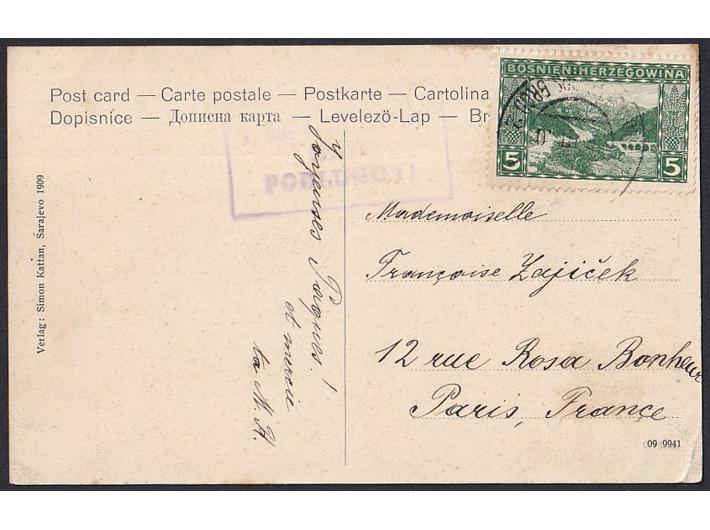 Post card — Carte postale — Postkarte — Cartolina
Dopisnice — Дописна карта — Levelező-Lap — Br
BOSNIEN-HERZEGOWINA
5 5
PODLUGOVI
Joyeuses Pâques!
et merci
ta M. H.
Mademoiselle
Françoise Zajiček
12 rue Rosa Bonheur
Paris, France
Verlag: Simon Kattan, Sarajevo 1909
09 9941